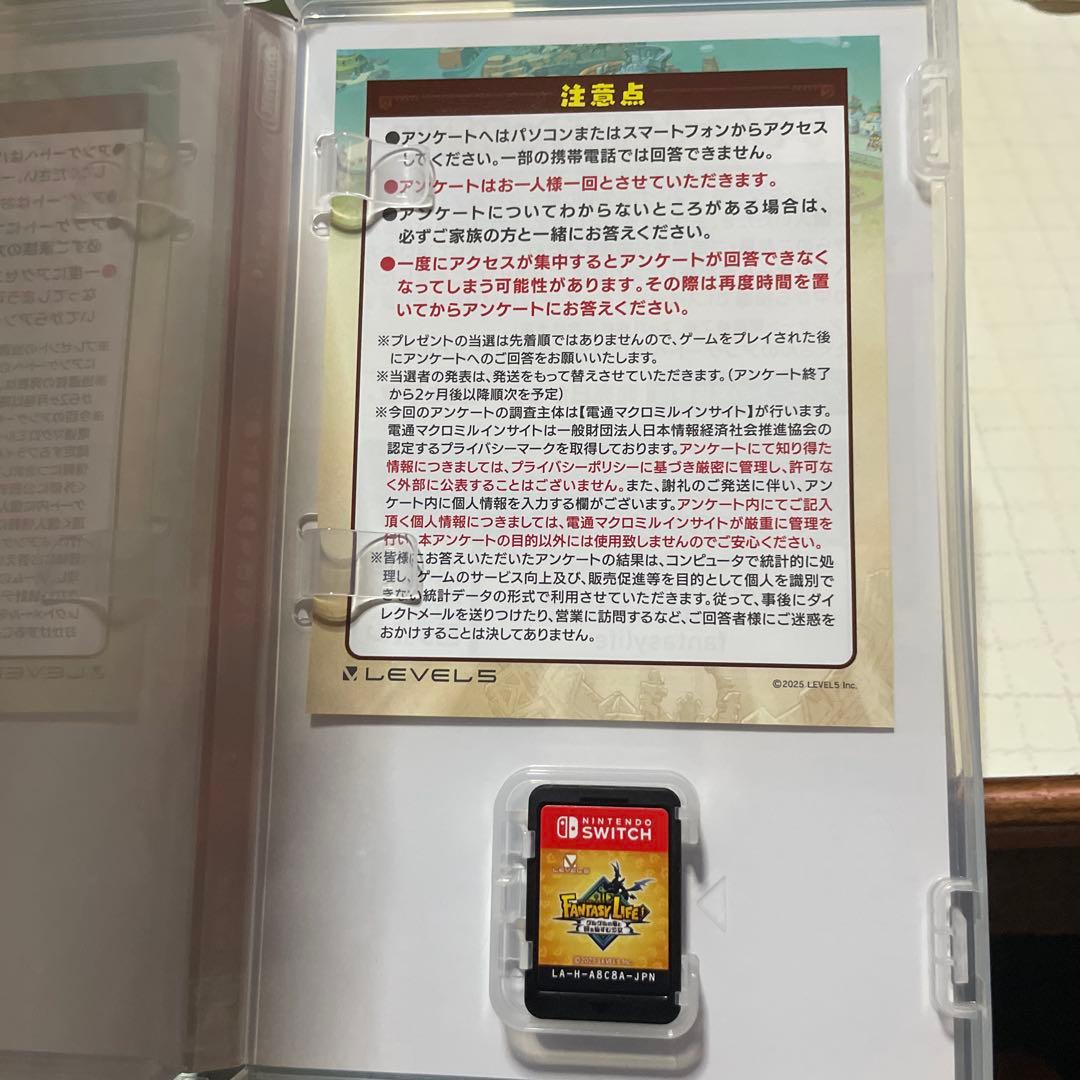 注意点
●アンケートへはパソコンまたはスマートフォンからアクセス
してください。一部の携帯電話では回答できません。
●アンケートはお一人様一回とさせていただきます。
●アンケートについてわからないところがある場合は、
必ずご家族の方と一緒にお答えください。
●一度にアクセスが集中するとアンケートが回答できなく
なってしまう可能性があります。その際は再度時間を置
いてからアンケートにお答えください。
※プレゼントの当選は先着順ではありませんので、ゲームをプレイされた後
にアンケートへのご回答をお願いいたします。
※当選者の発表は、発送をもって替えさせていただきます。(アンケート終了
から2ヶ月後以降順次を予定)
※今回のアンケートの調査主体は【電通マクロミルインサイト】が行います。
電通マクロミルインサイトは一般財団法人日本情報経済社会推進協会の
認定するプライバシーマークを取得しております。アンケートにて知り得た
情報につきましては、プライバシーポリシーに基づき厳密に管理し、許可な
く外部に公表することはございません。また、謝礼のご発送に伴い、アン
ケート内に個人情報を入力する欄がございます。アンケート内にてご記入
頂く個人情報につきましては、電通マクロミルインサイトが厳重に管理を
行い、本アンケートの目的以外には使用致しませんのでご安心ください。
※皆様にお答えいただいたアンケートの結果は、コンピュータで統計的に処
理し、ゲームのサービス向上及び、販売促進等を目的として個人を識別で
きない統計データの形式で利用させていただきます。従って、事後にダイ
レクトメールを送りつけたり、営業に訪問するなど、ご回答者様にご迷惑を
おかけすることは決してありません。
LEVEL5
©2025 LEVEL5 Inc.
NINTENDO
SWITCH
LEVEL5
FANTASY LIFE i
グルグルの竜と
時をぬすむ少女
©2025 LEVEL5 Inc.
LA-H-A8C8A-JPN